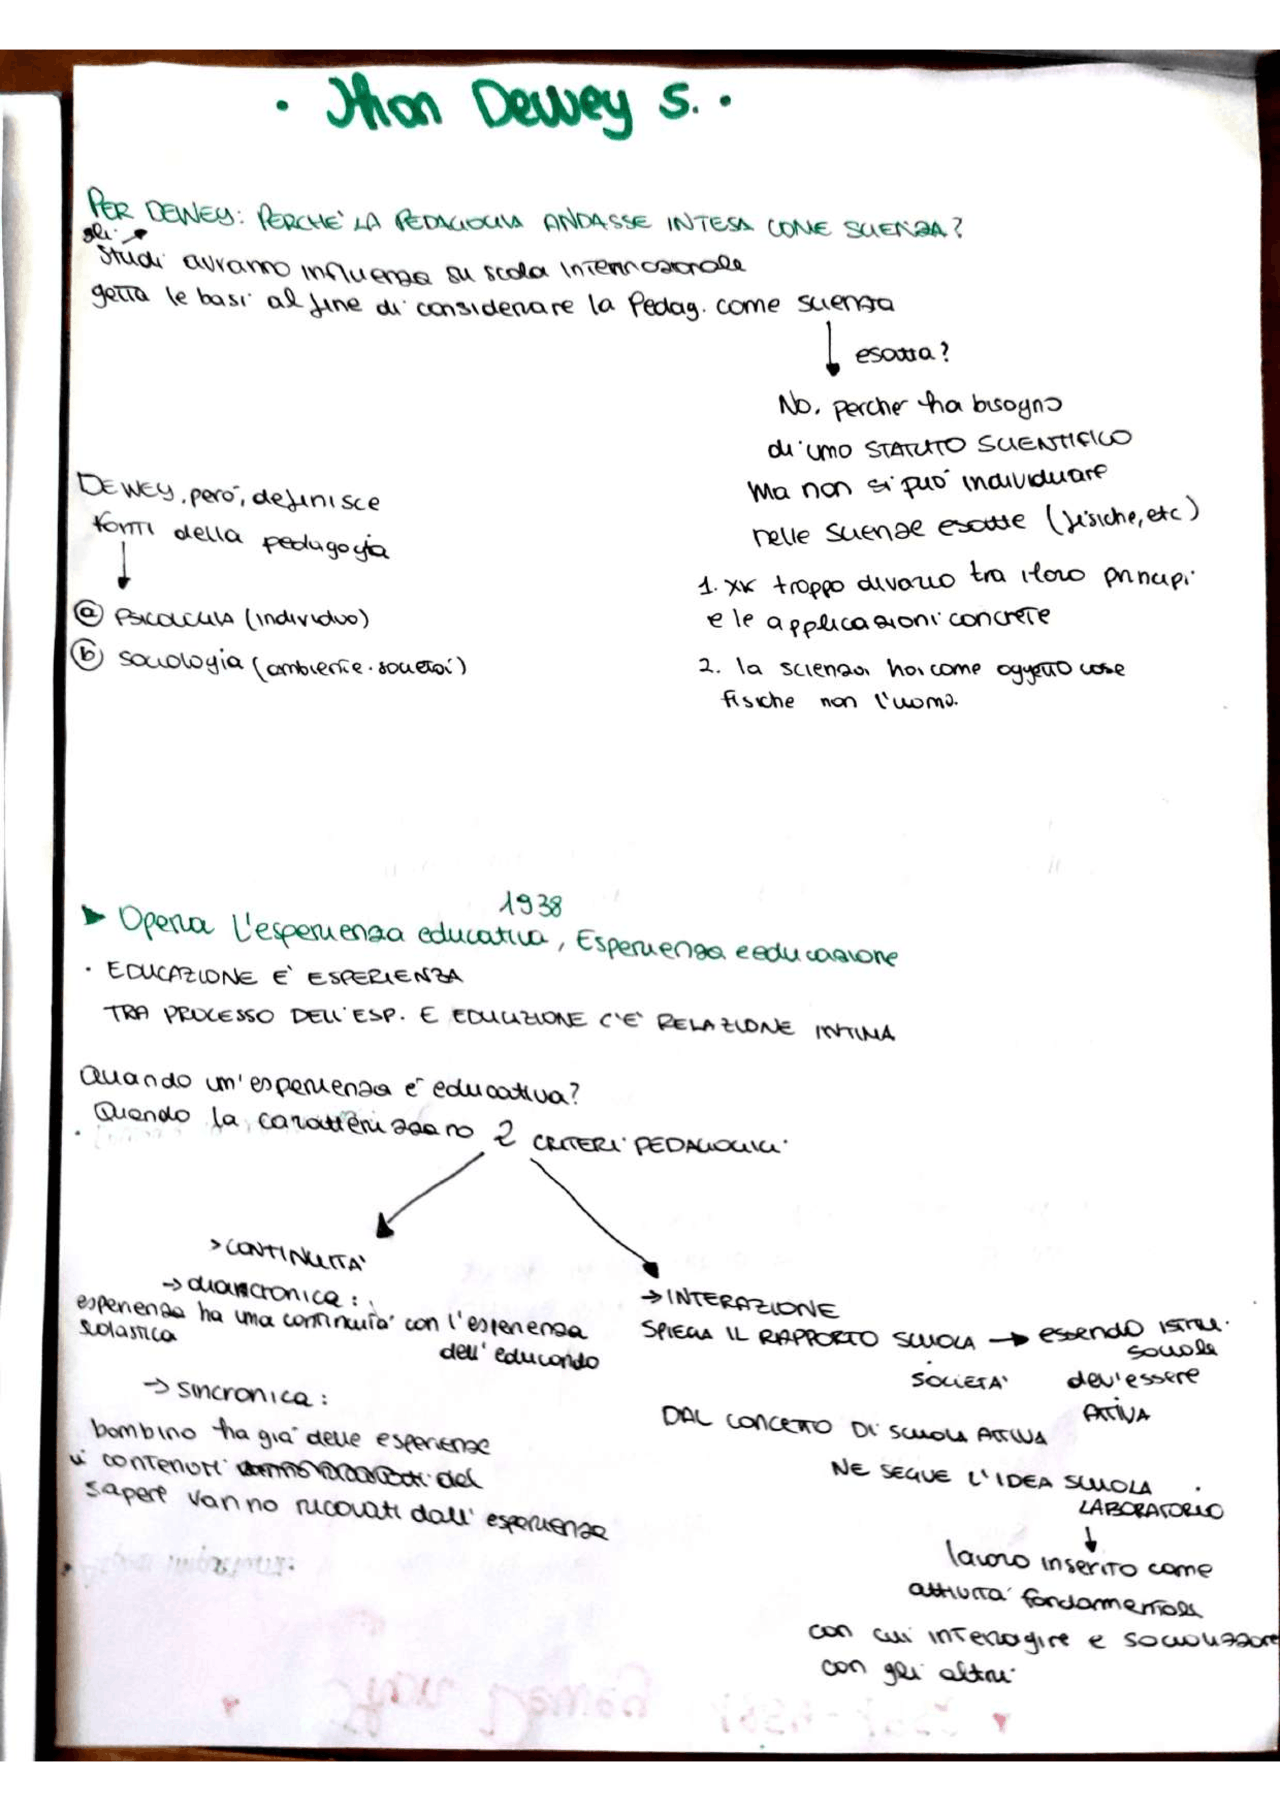 · Jhon Dewey S. ·
PER DEWEY: PERCHE' LA PEDAGOGIA ANDASSE INTESA COME SCIENZA?
gli
studi avranno influenza su scola internazionale
getta le basi al fine di considerare la Pedag. come scienza
esatta?
No, perche ha bisogno
di uno STATUTO SCIENTIFICO
ma non si può individuare
nelle scienze esatte (fisiche, etc)
1. xk troppo divario tra i loro principi
e le applicazioni concrete
2. la scienza ha come oggetto cose
fisiche non l'uomo.
DEWEY, però, definisce
fonti della pedagogia
a PSICOLOGIA (individuo)
b sociologia (ambiente · società)
1938
► Opera L'esperienza educativa, Esperienza e educazione
· EDUCAZIONE E' ESPERIENZA
TRA PROCESSO DELL'ESP. E EDUCAZIONE C'E' RELAZIONE INTIMA
Quando un'esperienza è educativa?
Quando la caratterizzano 2 CRITERI PEDAGOGICI
> CONTINUITA'
→ diancronica:
esperienza ha una continuità con l'esperienza
scolastica dell'educando
→ sincronica:
bambino ha già delle esperienze
i contenuti del
sapere vanno ricavati dall'esperienza
→ INTERAZIONE
SPIEGA IL RAPPORTO SCUOLA → essendo ISTITU.
SOCIETA'
sociale
dev'essere
ATTIVA
DAL CONCETTO DI SCUOLA ATTIVA
NE SEGUE L'IDEA SCUOLA
LABORATORIO
lavoro inserito come
attività fondamentale
con cui interagire e socializzare
con gli altri